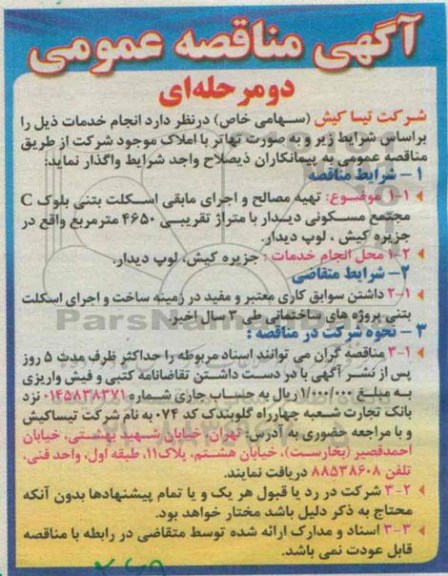 آگهی مناقصه عمومی
دو مرحله‌ای
شرکت تیسا کیش (سهامی خاص) درنظر دارد انجام خدمات ذیل را
براساس شرایط زیر و به صورت تهاتر با املاک موجود شرکت از طریق
مناقصه عمومی به پیمانکاران ذیصلاح واجد شرایط واگذار نماید:
۱ - شرایط مناقصه
۱-۱ موضوع: تهیه مصالح و اجرای مابقی اسکلت بتنی بلوک C
مجتمع مسکونی دیدار با متراژ تقریبی ۴۶۵۰ مترمربع واقع در
جزیره کیش ، لوپ دیدار.
۱-۲ محل انجام خدمات : جزیره کیش، لوپ دیدار.
۲- شرایط متقاضی
۲-۱ داشتن سوابق کاری معتبر و مفید در زمینه ساخت و اجرای اسکلت
بتنی پروژه های ساختمانی طی ۳ سال اخیر.
ParsNamad
۳ - نحوه شرکت در مناقصه :
۳-۱ مناقصه گران می توانند اسناد مربوطه را حداکثر ظرف مدت ۵ روز
پس از نشر آگهی با در دست داشتن تقاضانامه کتبی و فیش واریزی
به مبلغ ۱/۰۰۰/۰۰۰ ریال به حساب جاری شماره ۰۱۴۵۸۳۸۳۷۱ نزد
بانک تجارت شعبه چهارراه گلوبندک کد ۰۷۴ به نام شرکت تیساکیش
و با مراجعه حضوری به آدرس: تهران، خیابان شهید بهشتی، خیابان
احمدقصیر (بخارست)، خیابان هشتم، پلاک۱۱، طبقه اول، واحد فنی،
تلفن ۸۸۵۳۸۶۰۸ دریافت نمایند.
۳-۲ شرکت در رد یا قبول هر یک و یا تمام پیشنهادها بدون آنکه
محتاج به ذکر دلیل باشد مختار خواهد بود.
۳-۳ اسناد و مدارک ارائه شده توسط متقاضی در رابطه با مناقصه
قابل عودت نمی باشد.